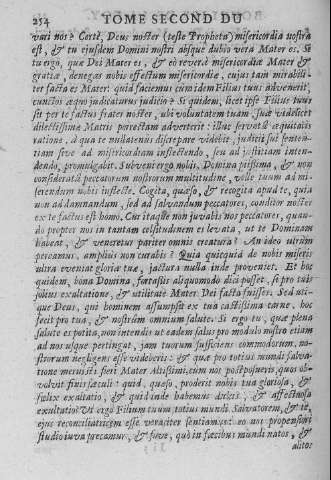 254 TOME SECOND DU
turi nos è Certè, Deus noster (teste Propheta) misericordia nostra
est, & tu ejusdem Domini nostri absque dubio vera Mater es. Si
tu ergo, quæ Dei Mater es, & eò reverà misericordiæ Mater &
gratiæ, denegas nobis effectum misericordiæ, cujus tam mirabili-
ter facta es Mater: quid faciemus cum idem Filius tuus advenerit,
cunctos æquo judicaturus judicio? Si quidem, licet ipse Filius tuus
sit per te factus frater noster, ubi voluntatem tuam, suæ videlicet
dilectissimæ Matris advertit: illius servatâ æquitatis
ratione, à qua te nullatenus discrepare videbit, judicii sui senten-
tiam sive ad misericordiam inflectendo, sive ad justitiam inten-
dendo, promulgabit. Subveni ergo nobis, Domina piissima, & non
consideratâ peccatorum nostrorum multitudine, velle tuum ad mi-
serendum nobis inflecte. Cogita, quæso, & recogita apud te, quia
non ad damnandum, sed ad salvandum peccatores, conditor noster
ex te factus est homo. Cur itaque non juvabis nos peccatores, quan-
do propter nos in tantam celsitudinem es levata, ut te Dominam
habeat, & veneretur pariter omnis creatura? An ideo utrùm
pereamus, ampliùs non curabis? Quia quicquid de nobis miseris
ultra eveniat gloriæ tuæ, jactura nulla inde proveniet. Et hoc
quidem, bona Domina, fortassis aliquomodo dici posset, si pro tui
solius exaltatione, & utilitate Mater Dei facta fuisses. Sed ali-
que Deus, qui hominem assumpsit ex tua castissima carne, hoc
fecit pro tua, & nostrûm omnium salute. Si ergo tu, quæ plena
salute es potita, non intendis ut eadem salus pro modulo nostro etiam
ad nos usque pertingat, jam tuorum sufficiens commodorum, no-
strorum negligens esse videberis: & quæ pro totius mundi salva-
tione meruisti fieri Mater Altissimi, cum nos postposueris, quos ob-
volvit finis sæculi: quid, quæso, proderit nobis tua gloriosa, &
fœlix exaltatio, & quid inde habemus dulcis, & affectuosa
exultatio? Ut ergo Filium tuum totius mundi Salvatorem, & te
ejus reconciliatricem esse veraciter sentiamus, eo nos propensiori
studio juva precamur, & fove, quò in fæcibus mundi natos, &
alitos